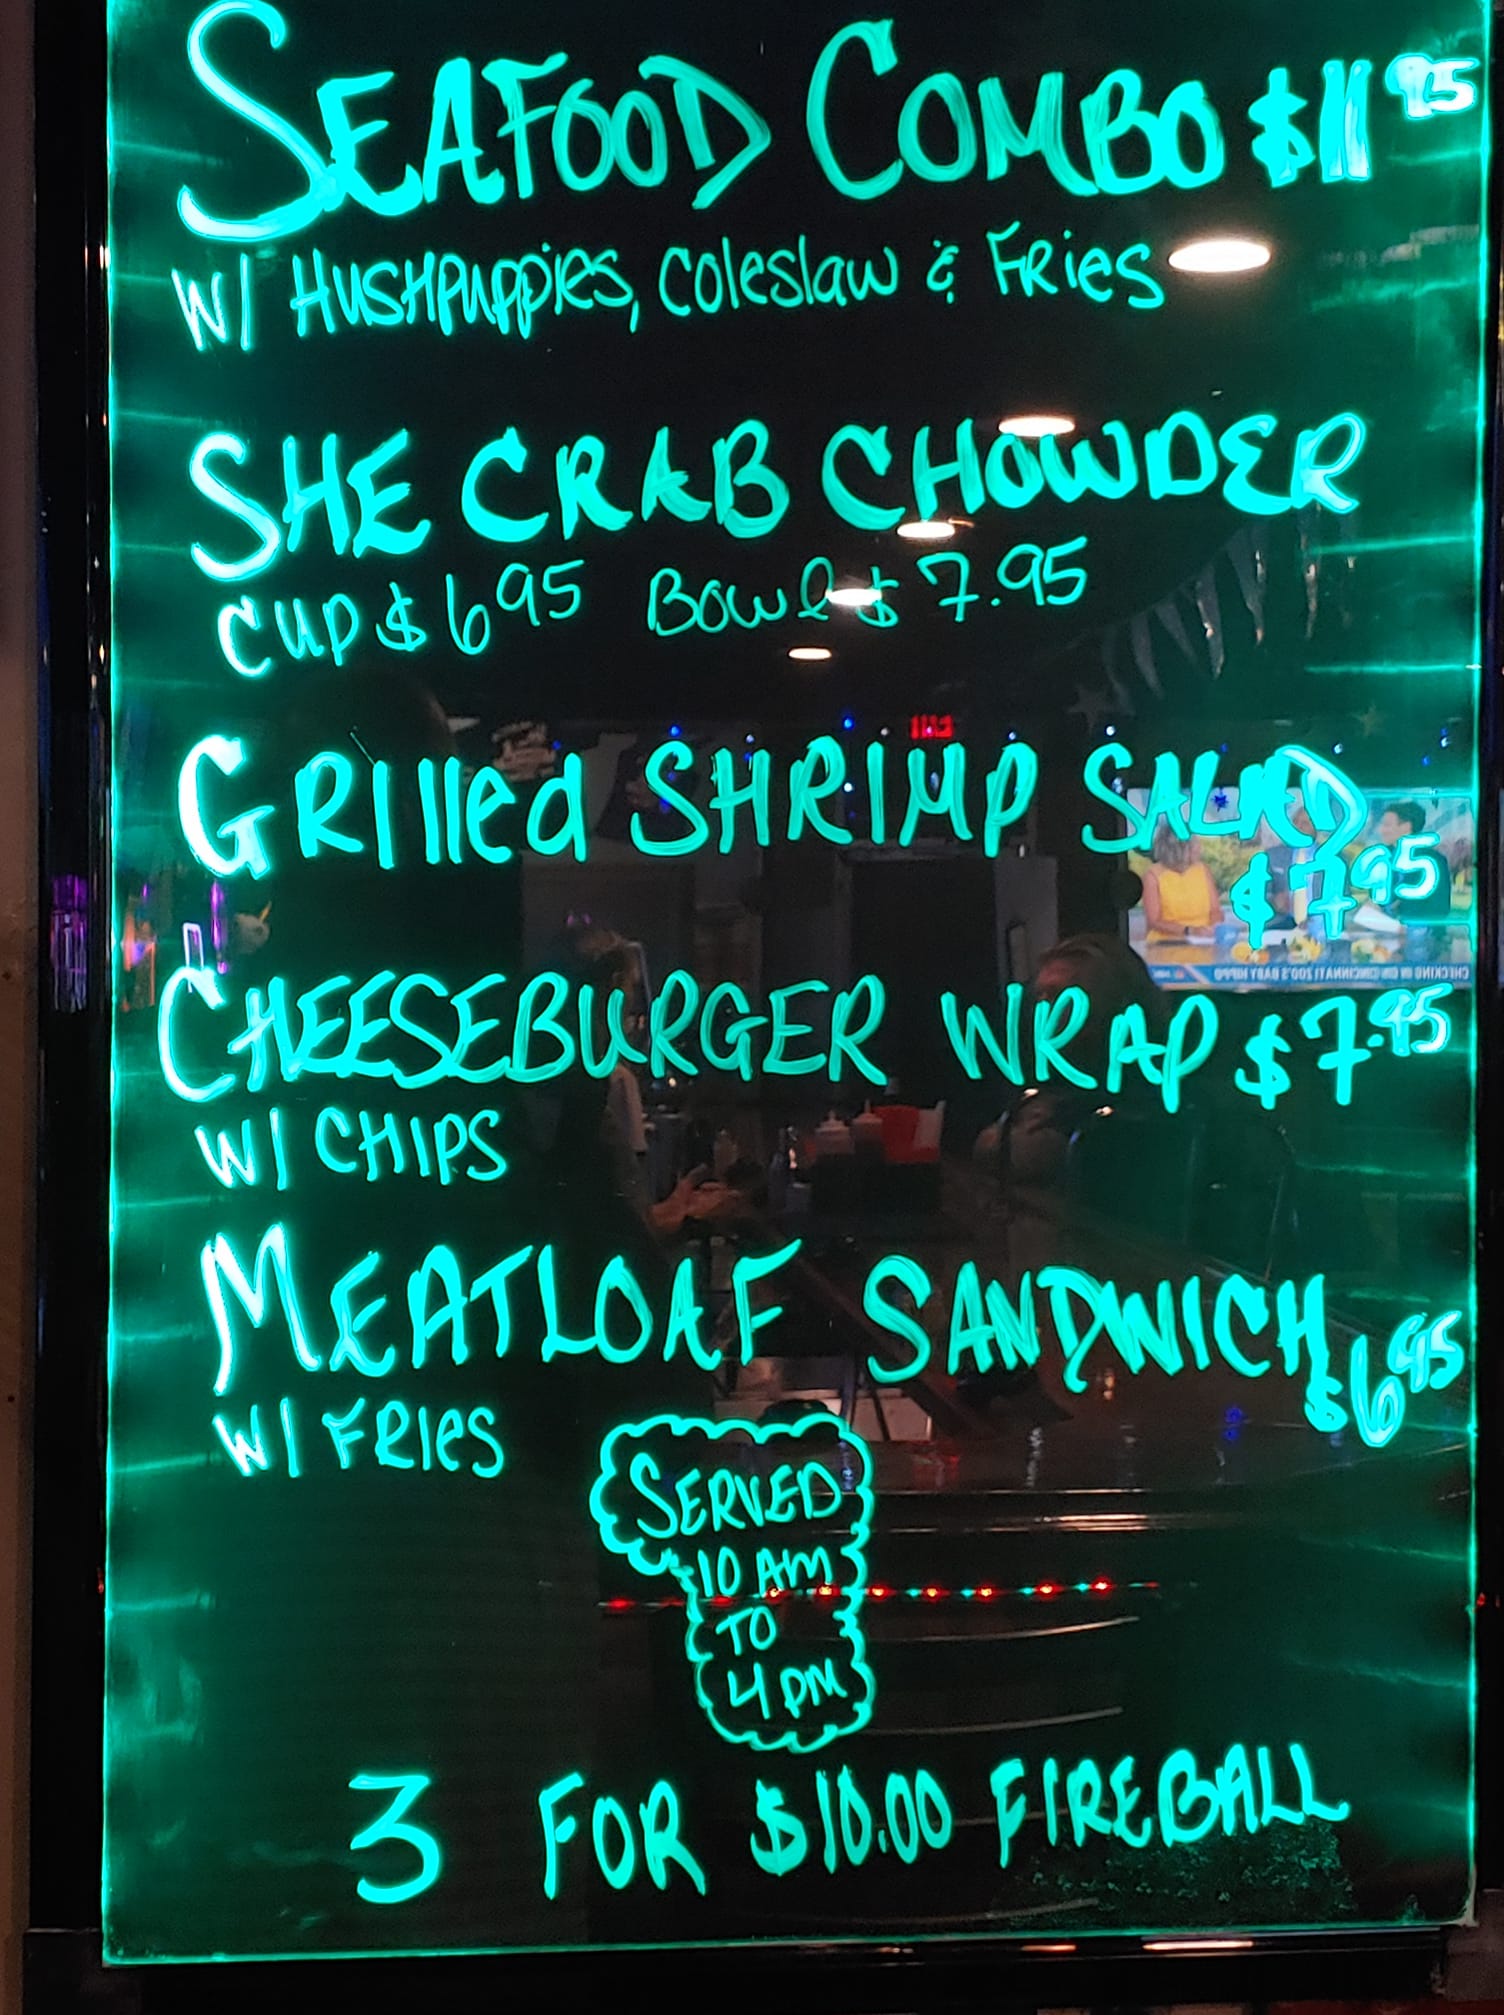 SEAFOOD COMBO $11 95
W/ HUSHPUPPIES, COLESLAW & FRIES
SHE CRAB CHOWDER
CUP $6 95 BOWL $7.95
GRILLED SHRIMP SALAD
$7 95
CHEESEBURGER WRAP $7.95
W/ CHIPS
MEATLOAF SANDWICH
$6 95
W/ FRIES
SERVED
10 AM
TO
4 PM
3 FOR $10.00 FIREBALL
EXIT
CHECKING IN ON CINCINNATI ZOO'S BABY HIPPO